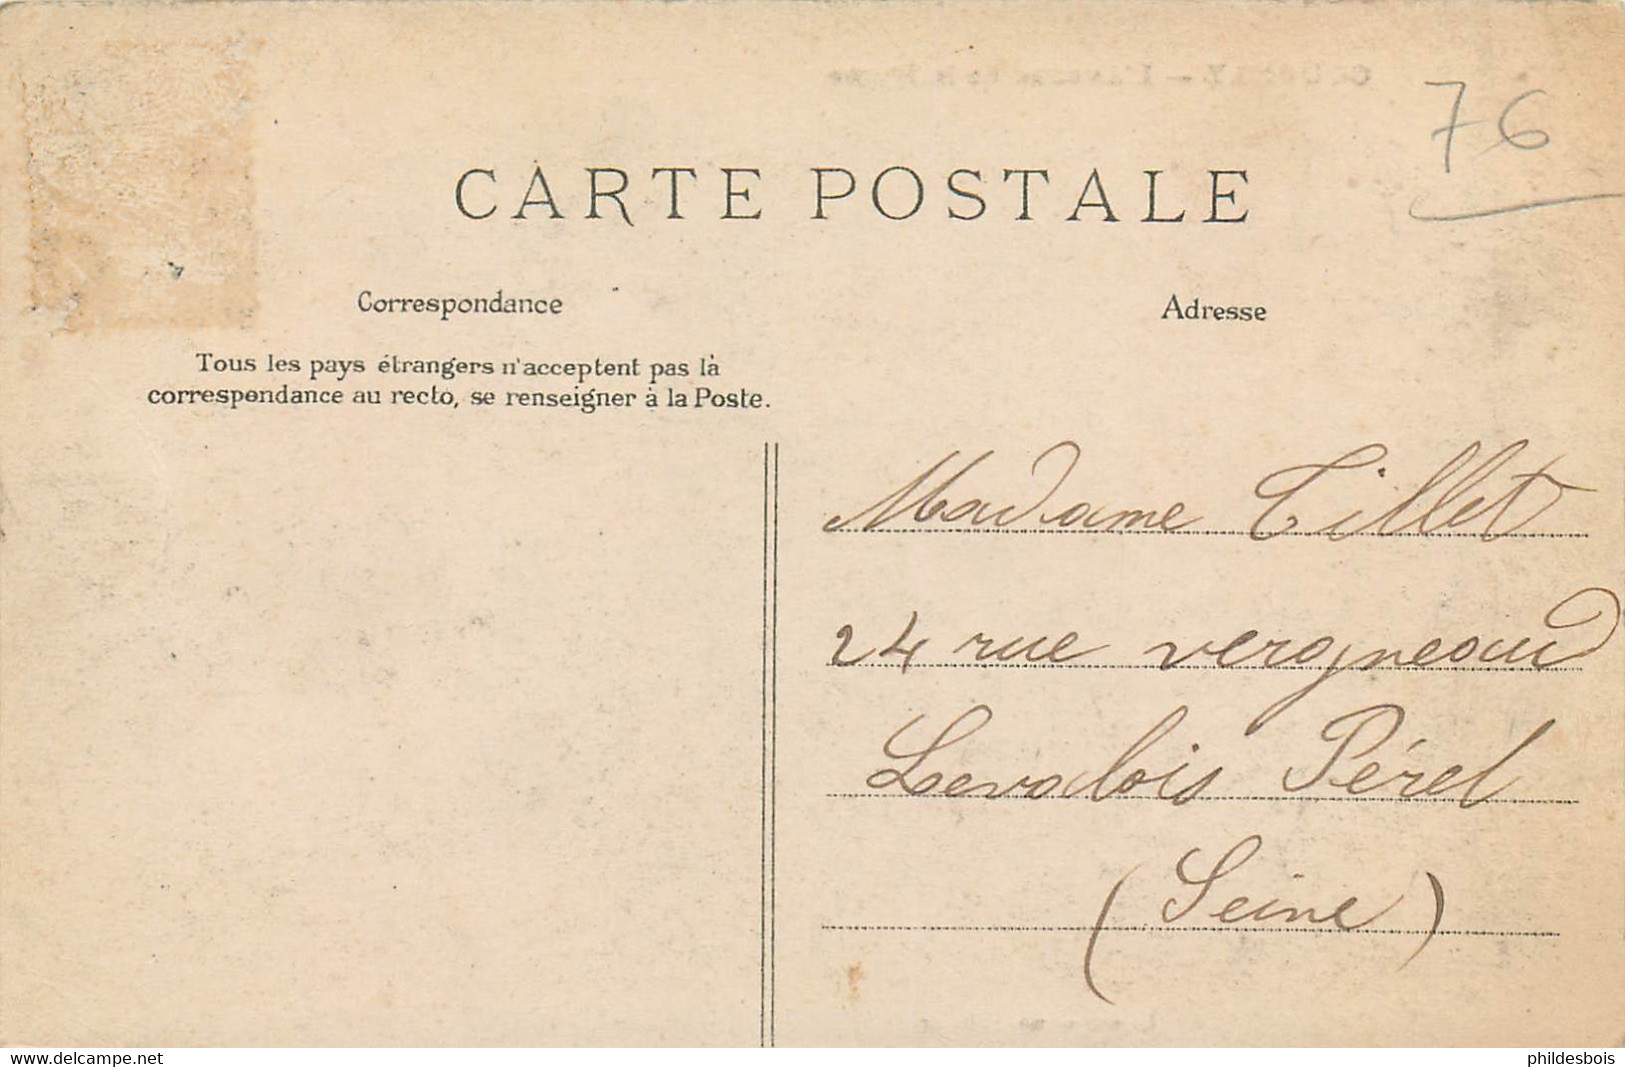 76
CARTE POSTALE
Correspondance
Adresse
Tous les pays étrangers n'acceptent pas là
correspondance au recto, se renseigner à la Poste.
Madame Tillet
24 rue vergneaud
Levalois Pérel
(Seine)
www.delcampe.net
phildesbois